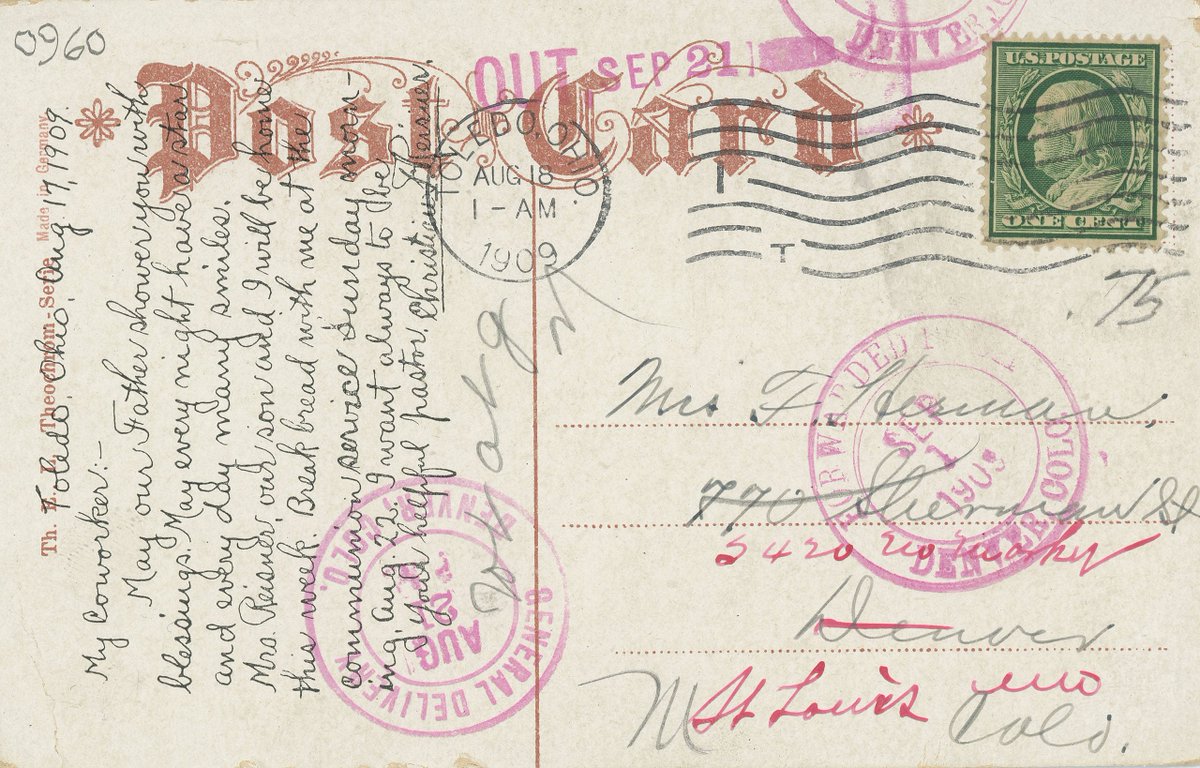 0960
Post Card
OUT SEP 21
DENVER, CO
U.S. POSTAGE
ONE CENT
TOLEDO, OHIO.
AUG 18
1-AM
1909
T
Th. E. L. Theochrom-Serie Made in Germany
Toledo, Ohio. Aug. 17, 1909.
My Coworker:-
May our Father shower you with
blessings. May every night have a star
and every day many smiles.
Mrs. Reisner, our son and I will be home
this week. Break bread with me at the
communion service Sunday morn-
ing, Aug. 22. I want always to be
your helpful pastor, Christian Reisner
.75
Mrs F. Herman,
770 Sherman St
5420
Denver
St Louis mo
Colo.
FORWARDED
SEP
1
1909
DENVER COLO.
GENERAL DELIVERY
AUG
21
DENVER, COLO.